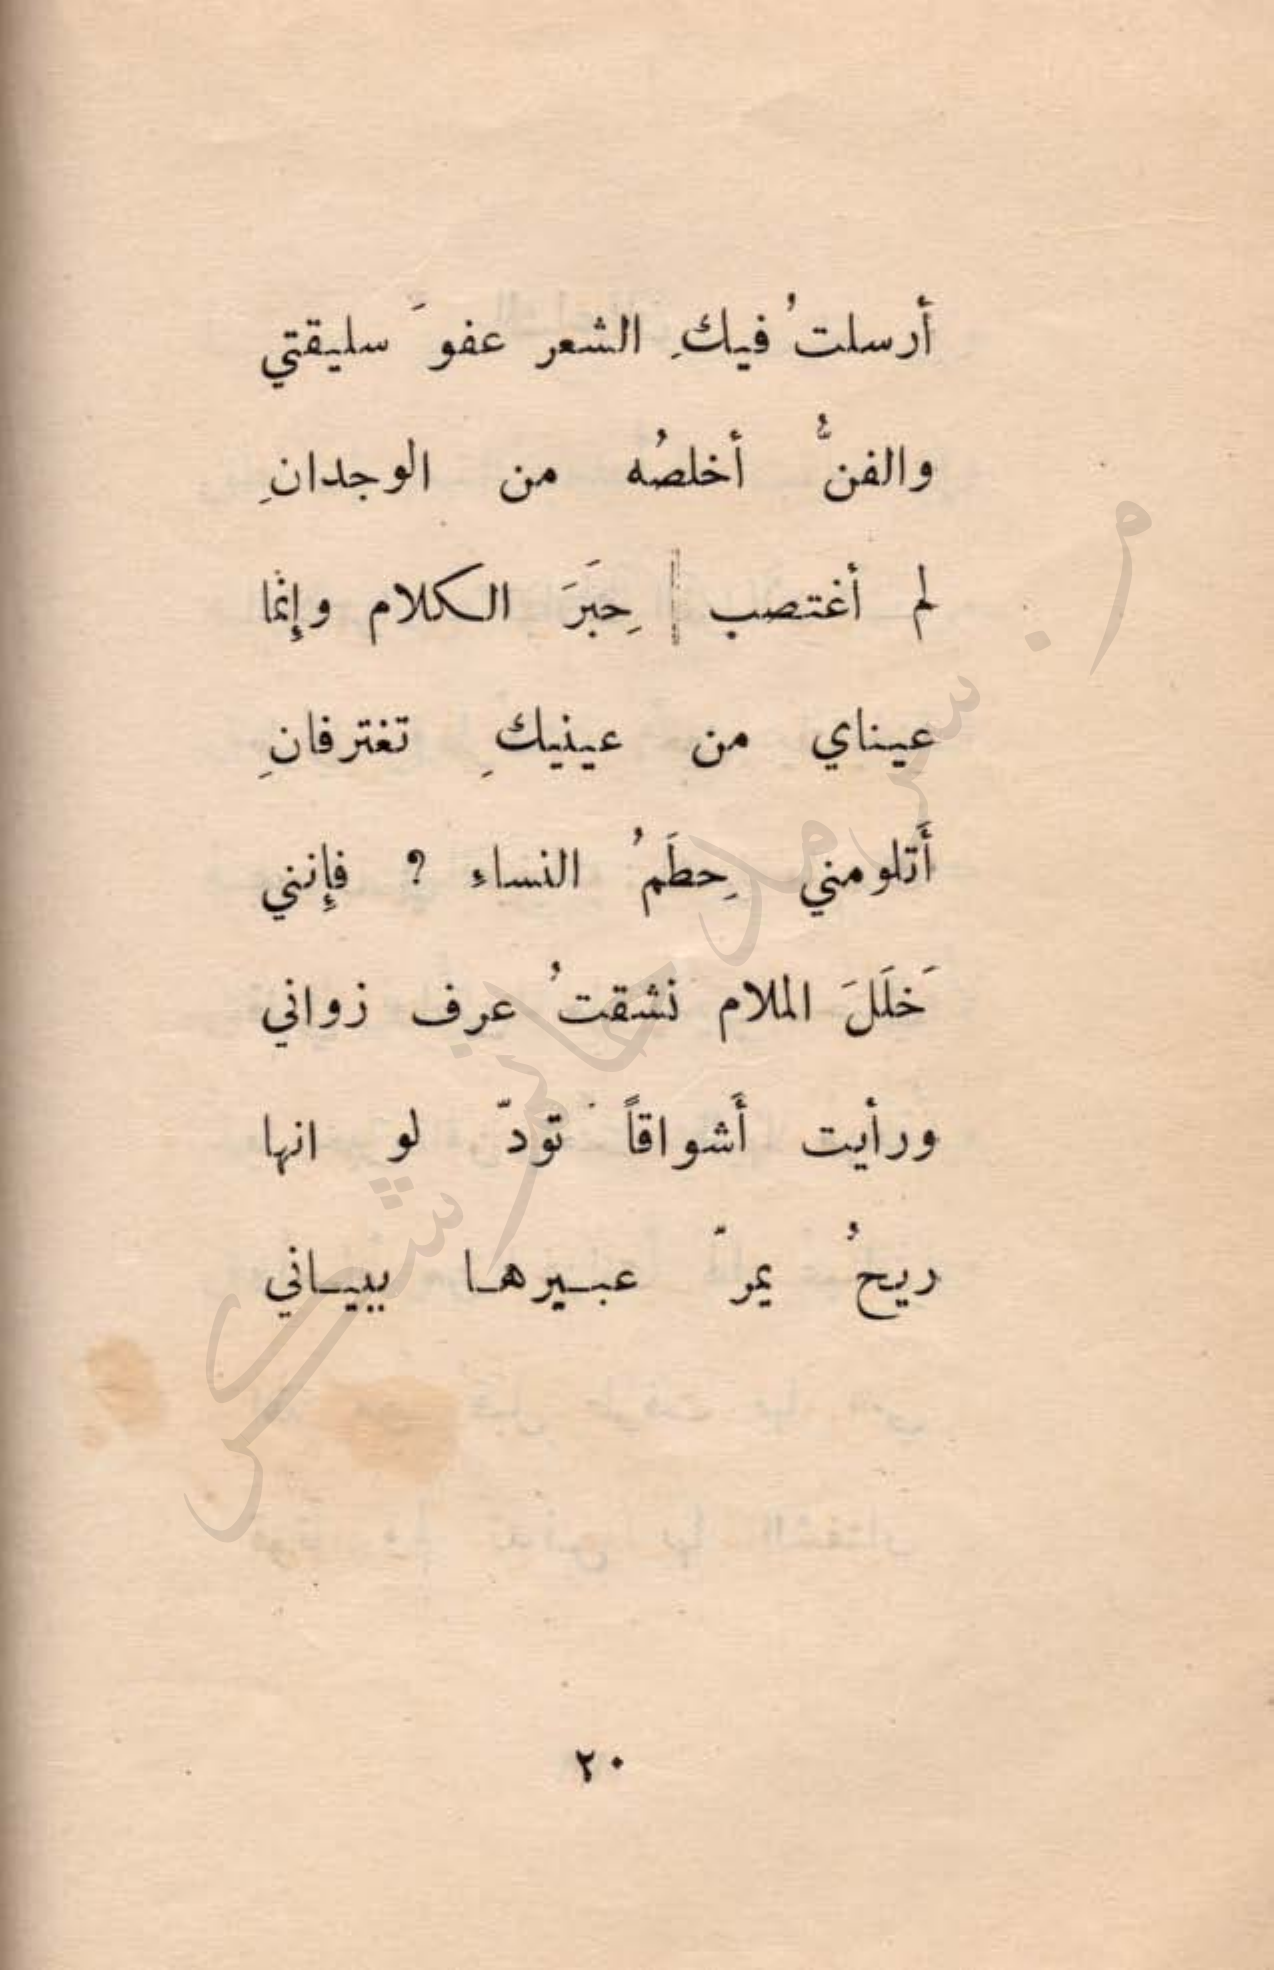 أرسلتُ فيكِ الشعر عفوَ سليقتي
والفنُّ أخلصُه من الوجدانِ
لم أغتصب حِبَرَ الكلام وإنما
عيناي من عينيكِ تغترفانِ
أَتلومني حِطَمُ النساءِ ? فإنني
خَلَلَ الملام نشقتُ عرف زواني
ورأيت أَشواقاً تودّ لو انها
ريحُ يمرّ عبيرها ببياني
٢٠